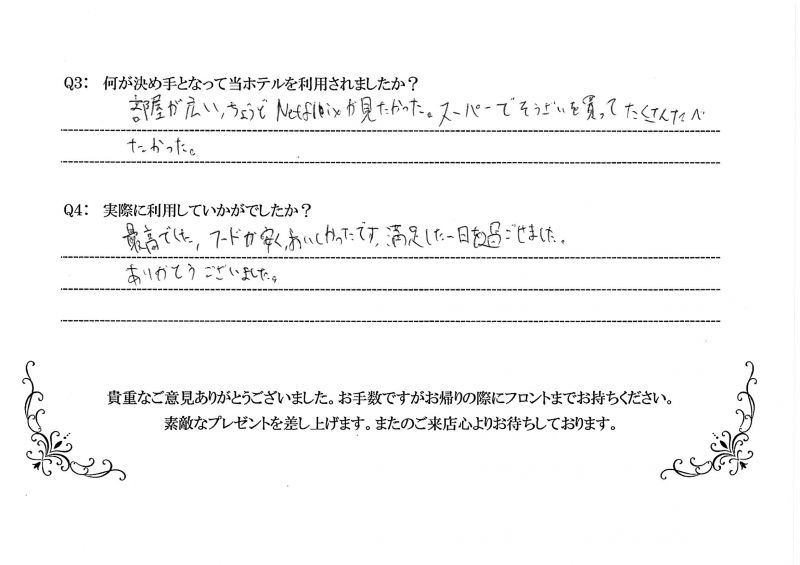 Q3： 何が決め手となって当ホテルを利用されましたか？
部屋が広い、ちょうどNetflixが見たかった。スーパーでそうざいを買ってたくさんたべ
たかった。
Q4： 実際に利用していかがでしたか？
最高でした、フードが安く、おいしかったです、満足した一日を過ごせました。
ありがとうございました。
貴重なご意見ありがとうございました。お手数ですがお帰りの際にフロントまでお持ちください。
素敵なプレゼントを差し上げます。またのご来店心よりお待ちしております。